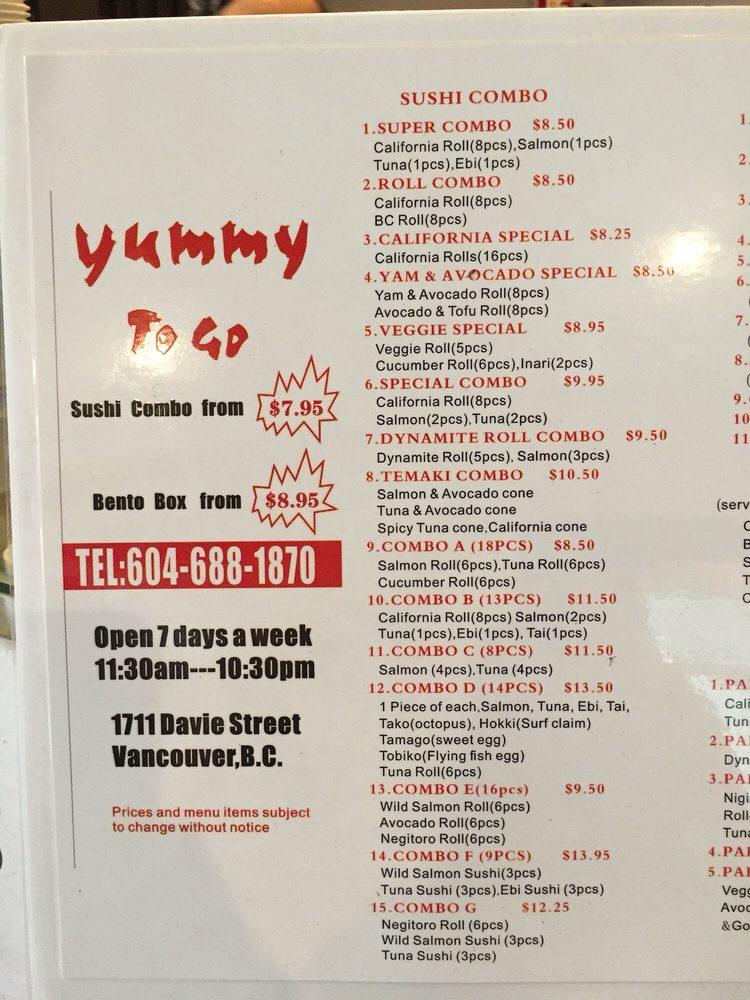 Yummy
To Go
Sushi Combo from $7.95
Bento Box from $8.95
TEL:604-688-1870
Open 7 days a week
11:30am---10:30pm
1711 Davie Street
Vancouver,B.C.
Prices and menu items subject
to change without notice
SUSHI COMBO
1.SUPER COMBO $8.50
California Roll(8pcs),Salmon(1pcs)
Tuna(1pcs),Ebi(1pcs)
2.ROLL COMBO $8.50
California Roll(8pcs)
BC Roll(8pcs)
3.CALIFORNIA SPECIAL $8.25
California Rolls(16pcs)
4.YAM & AVOCADO SPECIAL $8.50
Yam & Avocado Roll(8pcs)
Avocado & Tofu Roll(8pcs)
5.VEGGIE SPECIAL $8.95
Veggie Roll(5pcs)
Cucumber Roll(6pcs),Inari(2pcs)
6.SPECIAL COMBO $9.95
California Roll(8pcs)
Salmon(2pcs),Tuna(2pcs)
7.DYNAMITE ROLL COMBO $9.50
Dynamite Roll(5pcs), Salmon(3pcs)
8.TEMAKI COMBO $10.50
Salmon & Avocado cone
Tuna & Avocado cone
Spicy Tuna cone,California cone
9.COMBO A (18PCS) $8.50
Salmon Roll(6pcs),Tuna Roll(6pcs)
Cucumber Roll(6pcs)
10.COMBO B (13PCS) $11.50
California Roll(8pcs) Salmon(2pcs)
Tuna(1pcs),Ebi(1pcs), Tai(1pcs)
11.COMBO C (8PCS) $11.50
Salmon (4pcs),Tuna (4pcs)
12.COMBO D (14PCS) $13.50
1 Piece of each,Salmon, Tuna, Ebi, Tai,
Tako(octopus), Hokki(Surf claim)
Tamago(sweet egg)
Tobiko(Flying fish egg)
Tuna Roll(6pcs)
13.COMBO E(16pcs) $9.50
Wild Salmon Roll(6pcs)
Avocado Roll(6pcs)
Negitoro Roll(6pcs)
14.COMBO F (9PCS) $13.95
Wild Salmon Sushi(3pcs)
Tuna Sushi (3pcs),Ebi Sushi (3pcs)
15.COMBO G $12.25
Negitoro Roll (6pcs)
Wild Salmon Sushi (3pcs)
Tuna Sushi (3pcs)
1.
2.
3.
4.
5.
6.
7.
8.
9.
10
11
(serv
1.PA
Cali
Tun
2.PA
Dyn
3.PA
Nigi
Roll
Tuna
4.PA
5.PA
Veg
Avoc
&Go